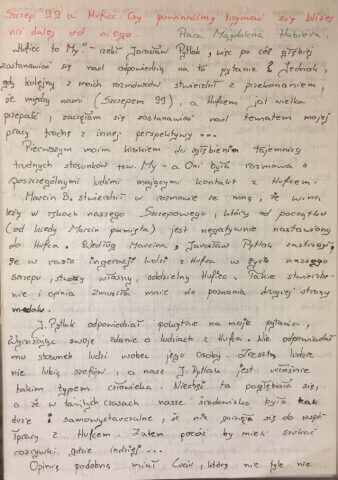 Szczep 99 a Hufiec. Czy powinniśmy trzymać się bliżej
niż dalej od niego. Praca Magdalena
"Hufiec to My" – rzekł Jarosław Pytlak, więc po cóż głębiej
zastanawiać się nad odpowiedzią na to pytanie? Jednak,
gdy kolejny z moich rozmówców stwierdził z przekonaniem,
że między nami (Szczepem 99), a Hufcem jest wielka
przepaść, zaczęłam się zastanawiać nad tematem mojej
pracy trochę z innej perspektywy...
Pierwszym moim krokiem do zgłębienia tajemnicy
trudnych stosunków tzw. My – a Oni była rozmowa z
poszczególnymi ludźmi mającymi kontakt z Hufcem.
Marcin B. stwierdził w rozmowie ze mną, że wina
leży w rękach naszego Szczepowego, który od początku
(od kiedy Marcin pamięta) jest negatywnie nastawiony
do Hufca. Według Marcina, Jarosław Pytlak zastrzegł,
że w razie ingerencji ludzi z Hufca w życie naszego
szczepu, stworzy własny, oddzielny Hufiec. Takie stwierdze-
nie i opinia zmusiła mnie do poznania drugiej strony
medalu.
J. Pytlak odpowiedział pokrętnie na moje pytania,
wyrażając swoje zdanie o ludziach z Hufca. Nie odpowiadał
mu stosunek ludzi wobec jego osoby. Zresztą ludzie
nie lubią szefów, a nasz J. Pytlak jest właśnie
takim typem człowieka. Niechęć ta pogłębiała się,
a że w tamtych czasach nasze środowisko było tak
duże i samowystarczalne, że nie paliło się do współ-
pracy z Hufcem. Zatem pocóż by mieli szukać
rozrywki gdzie indziej...
Opinię podobną miał, który nie tyle nie